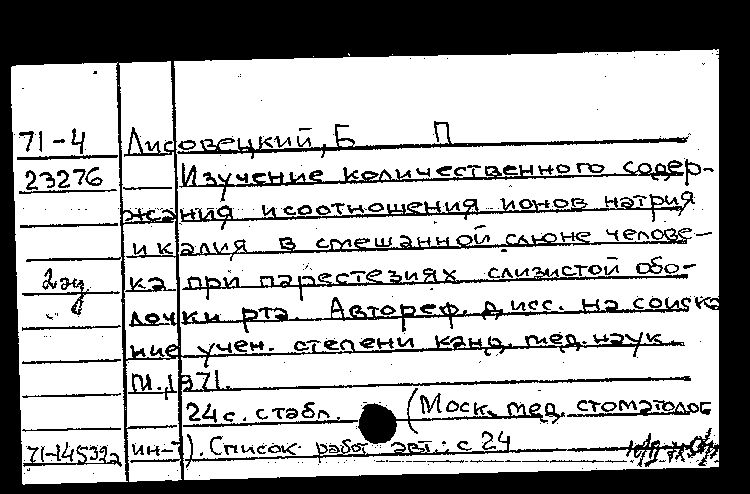 71-4 Лисовецкий, Б П
23276 Изучение количественного содер-
жания и соотношения ионов натрия
и калия в смешанной слюне челове-
2 эк ка при парестезиях слизистой обо-
лочки рта. Автореф. дисс. на соиска
ние учен. степени канд. мед. наук
М., 1971.
24 с. с табл. (Моск. мед. стоматолог
71-14539а ин-т). Список работ авт.: с 24